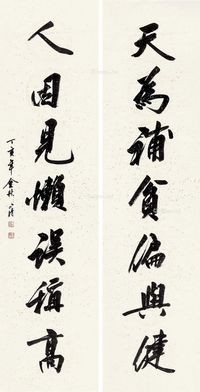 天為補貧偏與健
人因見懶误稱高
丁亥年金秋